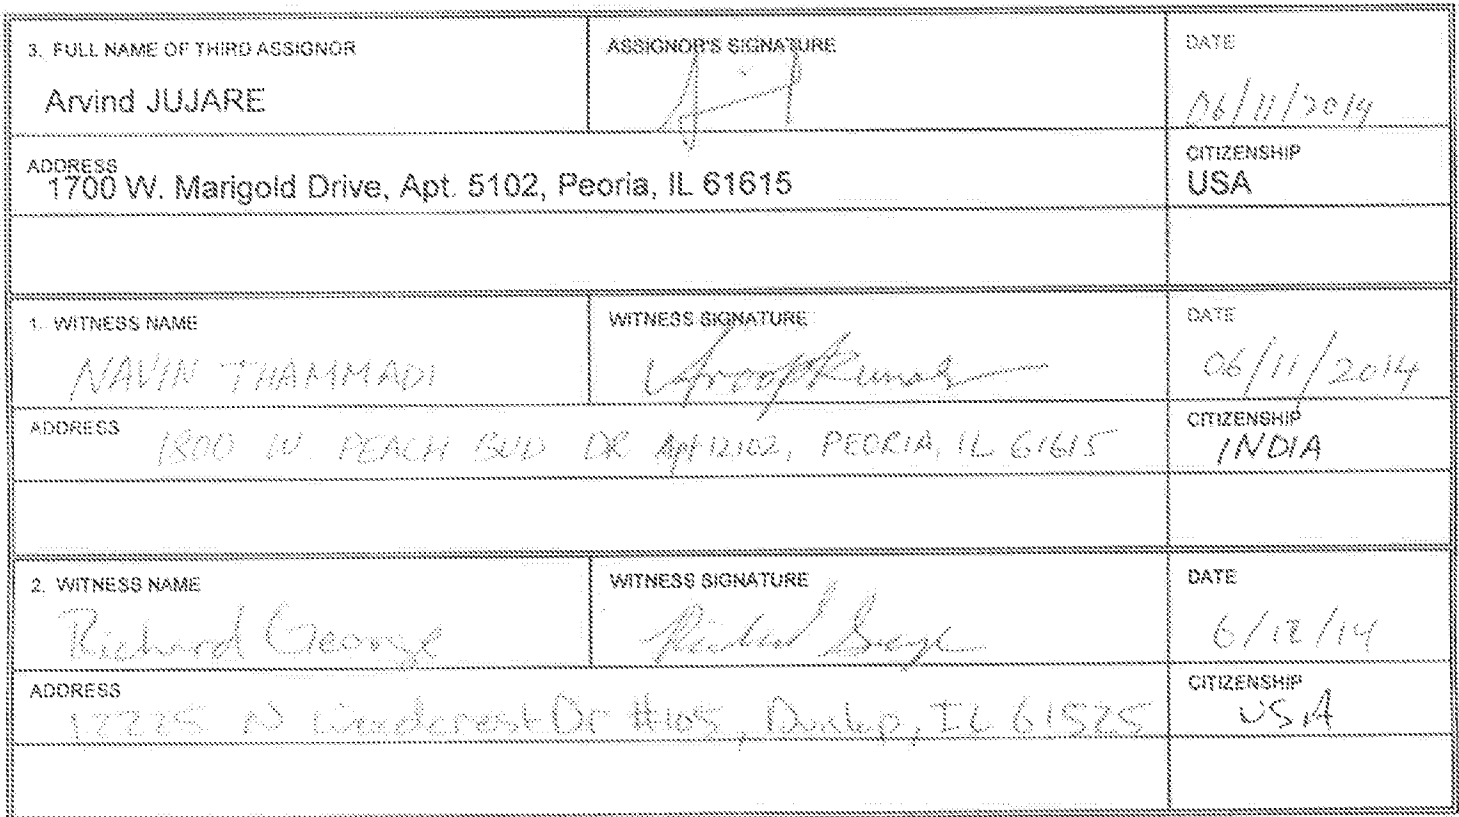 3. FULL NAME OF THIRD ASSIGNOR
Arvind JUJARE
ASSIGNOR'S SIGNATURE
DATE
06/11/2014
ADDRESS
1700 W. Marigold Drive, Apt. 5102, Peoria, IL 61615
CITIZENSHIP
USA
1. WITNESS NAME
NAVIN THAMMADI
WITNESS SIGNATURE
DATE
06/11/2014
ADDRESS
1800 W. PEACH BUD DR Apt 12102, PEORIA, IL 61615
CITIZENSHIP
INDIA
2. WITNESS NAME
Richard George
WITNESS SIGNATURE
Richard George
DATE
6/12/14
ADDRESS
12225 N Woodcrest Dr #105, Dunlap, IL 61525
CITIZENSHIP
USA